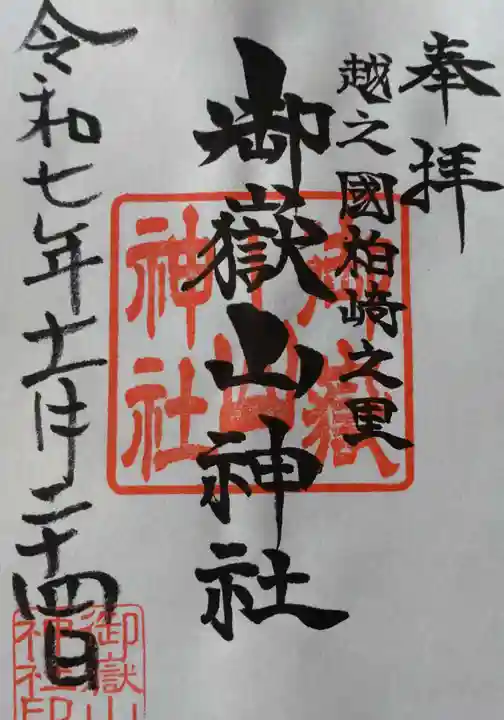 奉拝
越之國柏崎之里
御嶽山神社
令和七年十一月二十四日
御嶽
山
神社
御嶽山
神社印